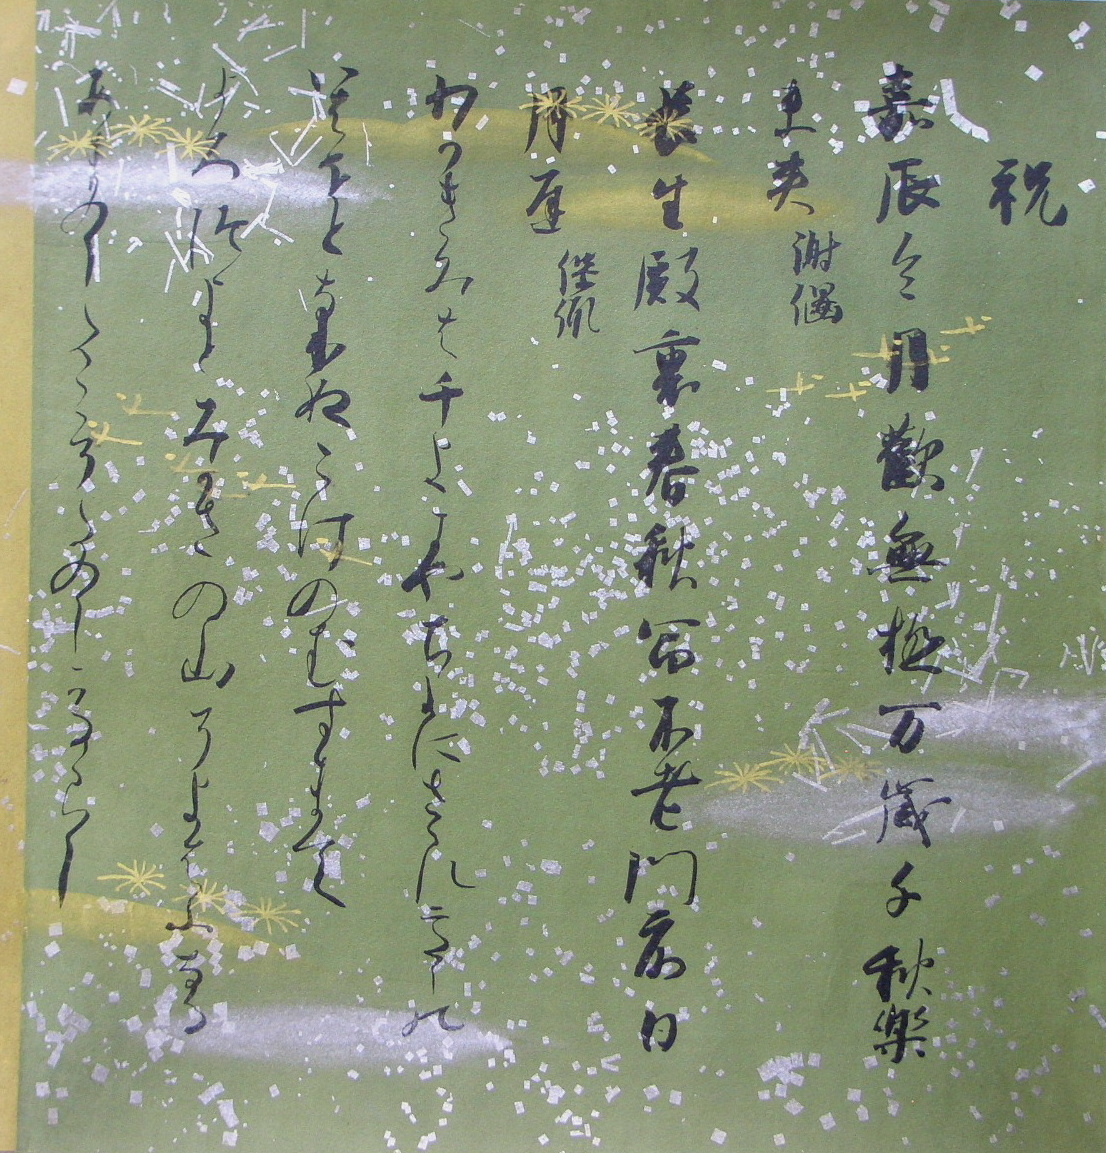 祝
嘉辰令月歡無極万歳千秋楽
未央 謝偃
長生殿裏春秋富不老門前日
月遅 保胤
わかきみは千よにやちよにさゝれいしの
いはほとなりてこけのむすまて
よろつよとみかさの山そよはふなる
あめのしたこそたのしかるらし